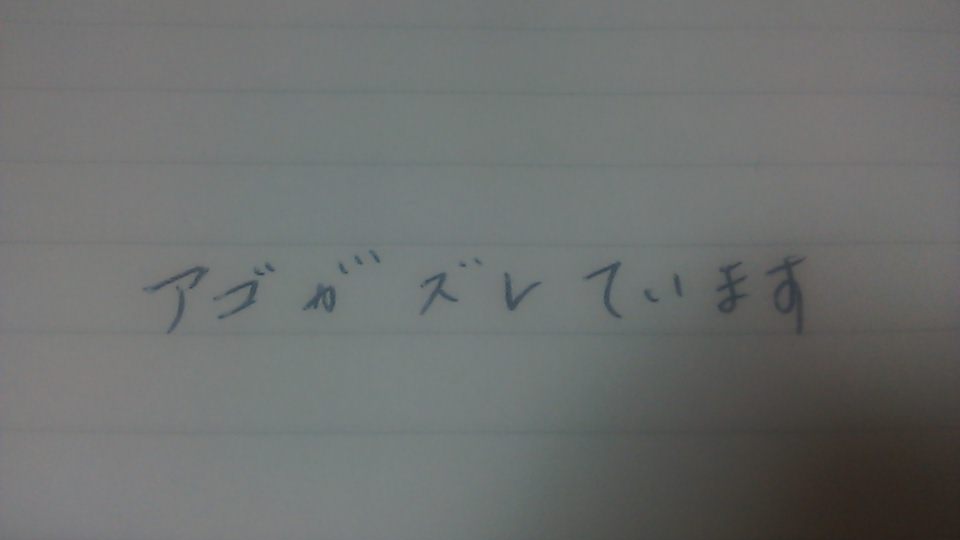 アゴがズレています